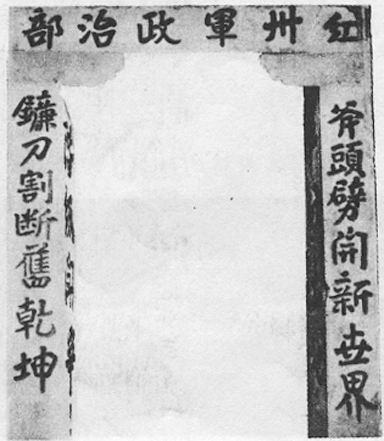 红卅軍政治部
斧頭劈開新世界
鐮刀割断舊乾坤